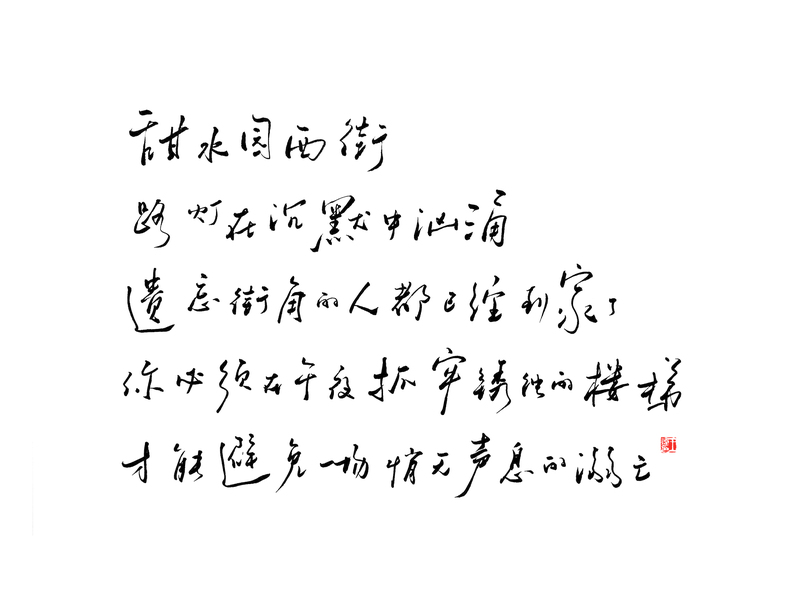 甜水园西街
路灯在沉默中汹涌
遗忘街角的人都已经到家了
你必须在午夜抓牢锈蚀的楼梯
才能避免一场悄无声息的溺亡